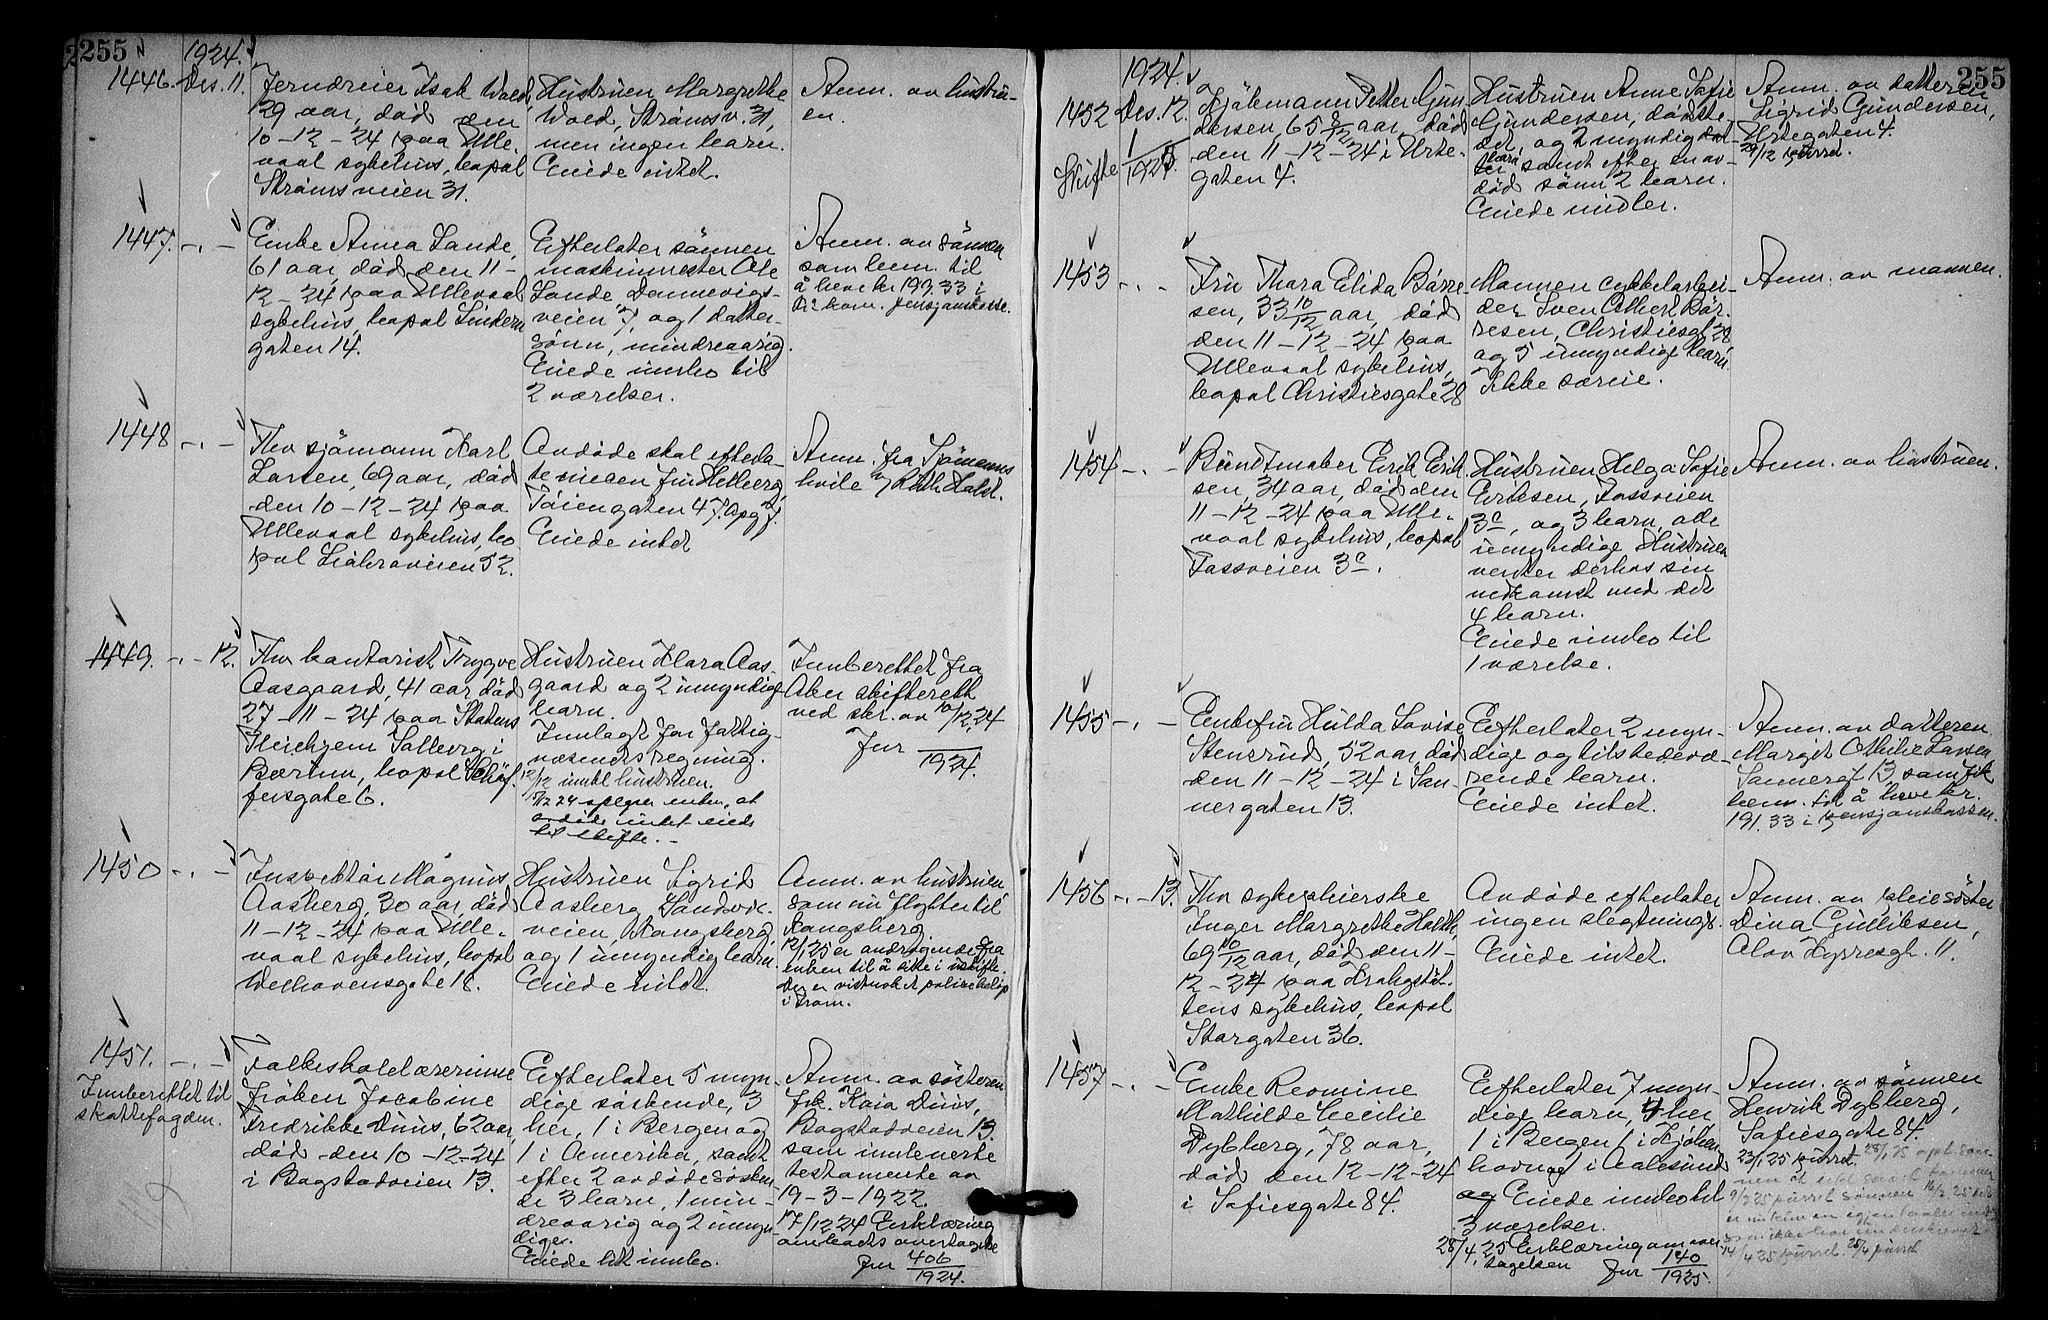 255
1924.
1446. Des. 11.
Jerndreier Isak Wold,
29 aar, död den
10-12-24 paa Ulle-
vaal sykehus, bopal
Strömsveien 31.
Hustruen Margrethe
Wold, Strömsv. 31,
men ingen barn.
Eiede intet.
Anm. av hustru-
en.
1447. -.-
Enke Anna Lande,
61 aar, död den 11-
12-24 paa Ullevaal
sykehus, bopal Lindern
gaten 14.
Efterlater sönnen
maskinmester Ole
Lande, Dannevigs-
veien 7, og 1 datter-
sönn, mindreaarig.
Eiede innbo til
2 værelser.
Anm. av sönnen
som bem. til
å heve kr 193.33 i
kom. pensjonskasse.
1448 -.-
Fhv sjömann Karl
Larsen, 69 aar, död
den 10-12-24 paa
Ullevaal sykehus, bo-
pal Ljabroveien 52.
Avdöde skal efterla-
te niecen fru Helberg,
Töiengaten 47. opg 7.
Eiede intet
Anm. fra Sjömanns
hvile v/ Ruth Holst.
1449. -.- 12.
Fhv kontorist Trygve
Aasgaard, 41 aar, död
27-11-24 paa Statens
Pleiehjem Solberg i
Bærum, bopal
fersgate 6.
Hustruen Klara Aas-
gaard og 2 umyndige
barn.
Innlagt for fattig-
væsenets regning.
12/12 innkl hustruen.
15/12 24 opgav enken, at
avdöde intet eiede
til skifte. -
Innberettet fra
Aker skifterett
ved skr. av 10/12 24
Jnr
1924.
1450 -.-
Inspektör Magnus
Aasberg, 30 aar, död
11-12-24 paa Ulle-
vaal sykehus, bopal
Welhavensgate 18.
Hustruen Sigrid
Aasberg, Sandvik-
veien, Kongsberg,
og 1 umyndig barn.
Eiede intet.
Anm. av hustruen
som nu flytter til
Kongsberg.
12/1 25 er andragende fra
enken til å sitte i uskifte.
Der er politihelp
i Dram.
1451. -.-
Innberettet til
skattefogden.
Folkeskolelærerinne
fröken Jacobine
Fredrikke Duus, 62 aar,
död den 10-12-24
i Bogstadveien 13.
Efterlater 5 myn-
dige söskende, 3
her, 1 i Bergen og
1 i Amerika, samt
efter 2 avdöde sösken-
de 3 barn, 1 min-
dreaarig og 2 umyn-
dige.
Eiede litt innbo.
Anm. av sösteren
frk. Kaia Duus,
Bogstadveien 13.
som innleverte
testamente av
19-3-1922.
17/12 24 Erklæring
om boets overtagelse
Jnr 406
1924.
255
1924.
1452 Des. 12.
Skifte 1
1925.
Kjökemann Petter Gun-
dersen, 65 8/12 aar, död
den 11-12-24 i Urte-
gaten 4.
Hustruen Anne Sofie
Gundersen, dödste-
det, og 2 myndige
barn samt efter en av-
död sönn 2 barn.
Eiede midler.
Anm. av datteren
Sigrid Gundersen,
Urtegaten 4.
29/12 purret.
1453 -.-
Fru Thora Elida Börre-
sen, 33 10/12 aar, död
den 11-12-24 paa
Ullevaal sykehus,
bopal Christiesgate 28
Mannen cykkelarbei-
der Sven Albert Bör-
resen, Christiesgt 28
og 5 umyndige barn.
Ikke særeie.
Anm. av mannen.
1454 -.-
Bundtmaker Erik Erik-
sen, 34 aar, död den
11-12-24 paa Ulle-
vaal sykehus, bopal
Fossveien 3c.
Hustruen Helga Sofie
Eriksen, Fossveien
3c, og 3 barn, alle
umyndige. Hustruen
venter derhos sin
nedkomst med det
4 barn.
Eiede innbo til
1 værelse.
Anm. av hustruen.
1455 -.-
Enkefru Hulda Lovise
Stensrud, 52 aar, död
den 11-12-24 i San-
nergaten 13.
Efterlater 2 myn-
dige og tilstedevæ-
rende barn.
Eiede intet.
Anm. av datteren
Margit Othilie Larsen
Sannergt 13, som fik
bem. til å heve kr.
191.33 i pensjonskassen.
1456 -.- 13.
Fhv sykepleierske
Inger Margrethe Holth,
69 10/12 aar, död den 11-
12-24 paa Krohgstöt-
tens sykehus, bopal
Storgaten 36.
Avdöde efterlater
ingen slegtninge.
Eiede intet.
Anm. av pleiesöster
Dina Gulliksen,
Olav Kyrresgt. 11.
1457 -.-
Enke Reomine
Mathilde Cecilie
Dybberg, 78 aar,
död den 12-12-24
i Sofiesgate 84.
Efterlater 7 myn-
dige barn, 4 her,
1 i Bergen, 1 i Kjöben-
havn og 1 i Aalesund
og Eiede innbo til
3 værelser.
28/4 25 Erklæring om over-
tagelsen Jnr 140
1925.
Anm. av sönnen
Henrik Dybberg,
Sofiesgate 84.
23/1 25 purret.
9/2 25 purret sönnen
14/4 25 purret. 25/4 purret